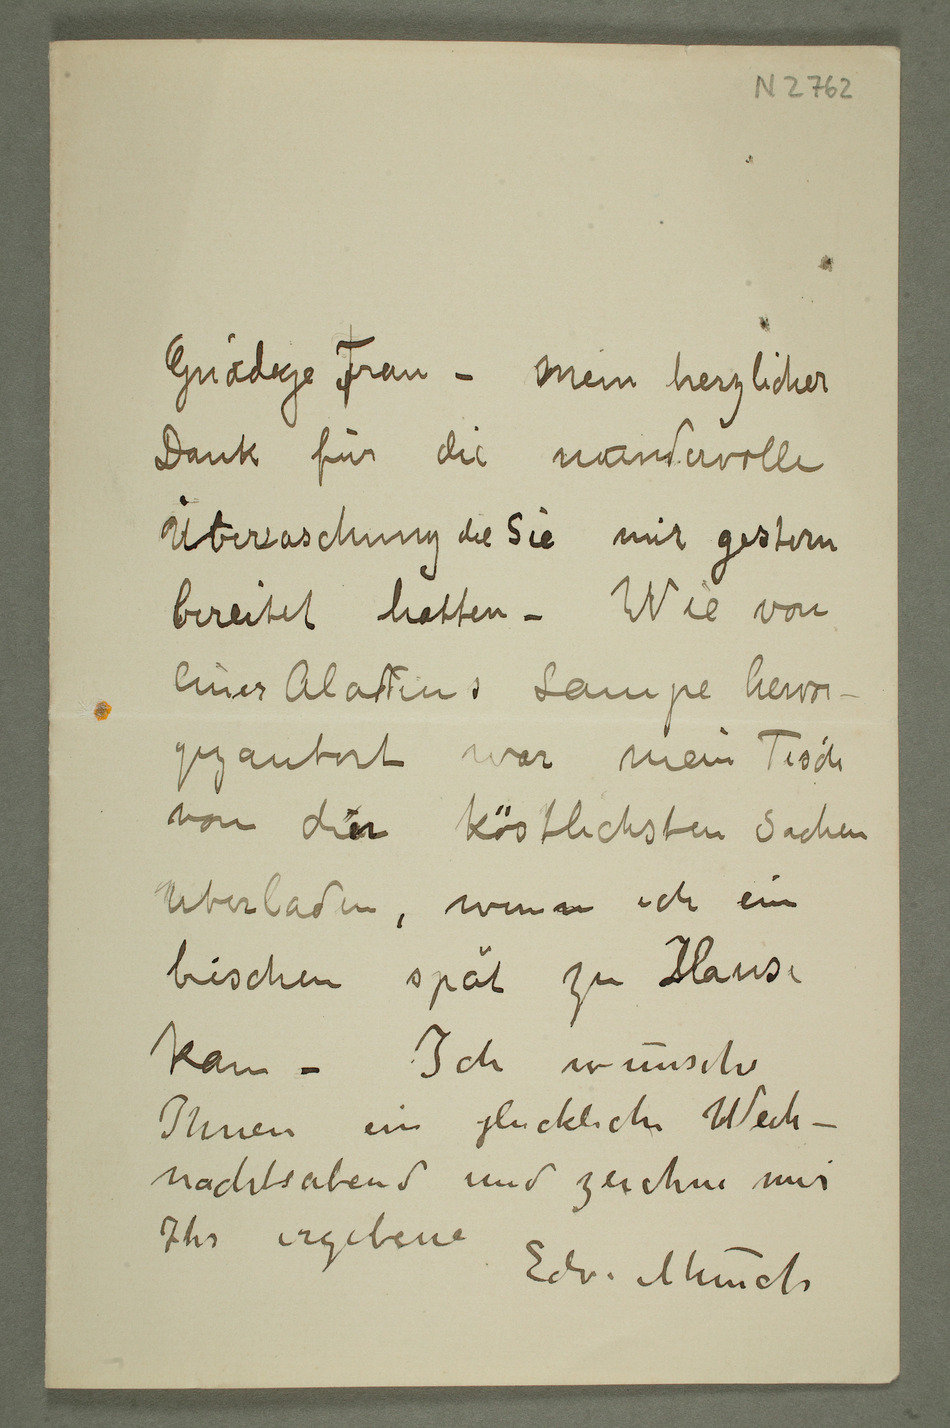 N 2762
Gnädige Frau – mein herzlicher
Dank für die wundervolle
Überraschung die Sie mir gestern
bereitet hatten – Wie von
einer Aladins Lampe hervor-
gezaubert war mein Tisch
von den köstlichsten Sachen
überladen, wenn ich ein
bischen spät zu Hause
kam – Ich wünsche
Ihnen ein glückliche Weih-
nachtsabend und zeichne mir
Ihr ergebene
Edv. Munch